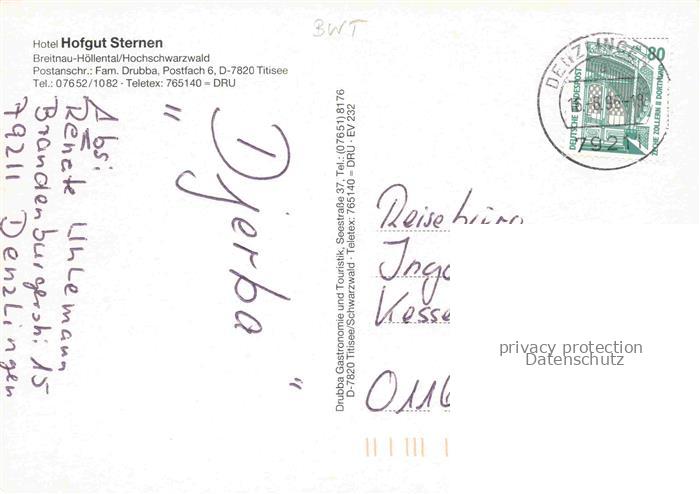 BWT
Hotel Hofgut Sternen
Breitnau-Höllental/Hochschwarzwald
Postanschr.: Fam. Drubba, Postfach 6, D-7820 Titisee
Tel.: 07652/1082 · Teletex: 765140 = DRU
Abs:
Renate Uhlemann
Brandenburgerstr. 15
79211 Denzlingen
" Djerba "
Drubba Gastronomie und Touristik, Seestraße 37, Tel.: (07651) 8176
D-7820 Titisee/Schwarzwald · Teletex: 765140 = DRU · EV 232
DENZLINGEN
7921
80
DEUTSCHE BUNDESPOST
ZECHE ZOLLERN II DORTMUND
Reisebüro
Ingo
Kesse
0116
privacy protection
Datenschutz